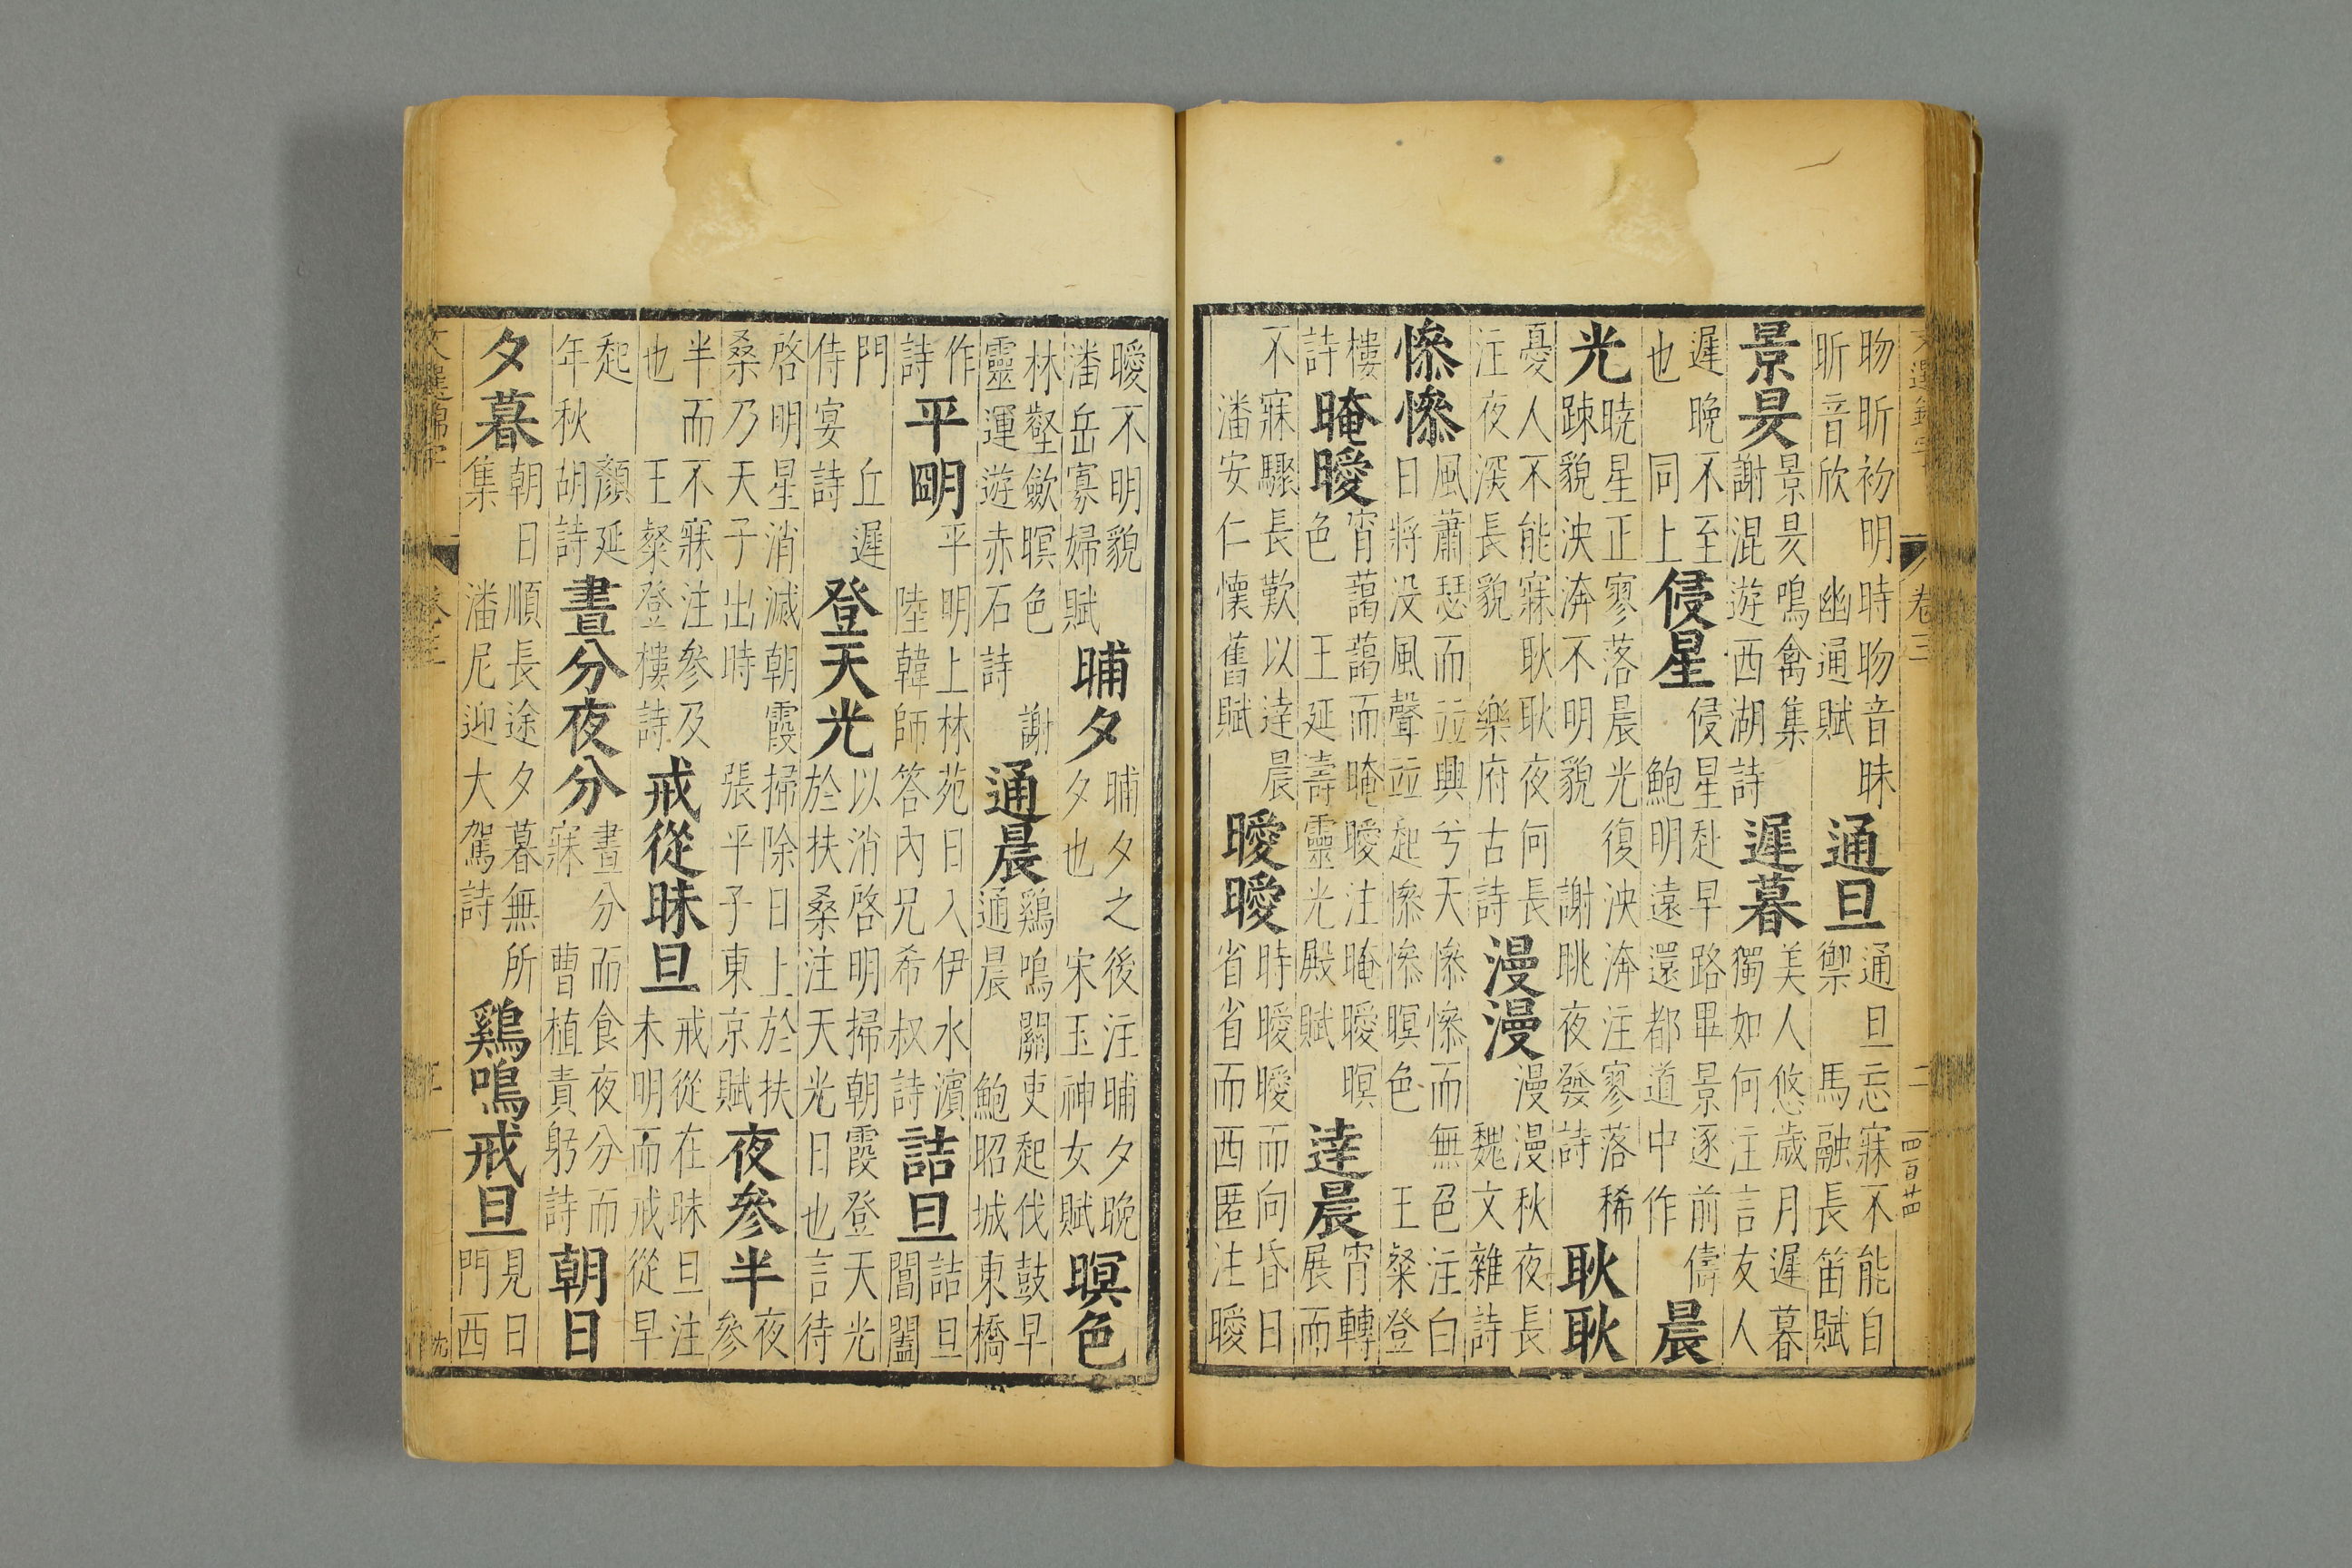 文選錦字 卷三 二 四百廿四
昒昕初明時昒音昧
昕音欣 幽通賦
通旦
通旦忘寐不能自
禦 馬融長笛賦
景昃
景昃鳴禽集
謝混遊西湖詩
遲暮
美人悠歲月遲暮
獨如何注言友人
遲晚不至
也 同上
侵星
侵星赴早路畢景逐前儔
鮑明遠還都道中作
晨
光
曉星正寥落晨光復泱漭注寥落稀
踈貌泱漭不明貌 謝眺夜發詩
耿耿
憂人不能寐耿耿夜何長
注夜深長貌 樂府古詩
漫漫
漫漫秋夜長
魏文雜詩
慘慘
風蕭瑟而竝興兮天慘慘而無色注白
日將没風聲竝起慘慘暝色 王粲登
樓
詩
晻曖
宵藹藹而晻曖注晻曖暝
色 王延壽靈光殿賦
逹晨
宵轉
展而
不寐驟長歎以達晨
潘安仁懷舊賦
曖曖
時曖曖而向昏日
省省而西匿注曖
曖不明貌
潘岳寡婦賦
晡夕
晡夕之後注晡夕晚
夕也 宋玉神女賦
暝色
林壑斂暝色 謝
靈運遊赤石詩
通晨
鷄鳴關吏起伐鼓早
通晨 鮑昭城東橋
作
詩
平明
平明上林苑日入伊水濱
陸韓師答內兄希叔詩
詰旦
詰旦
閶闔
門 丘遲
侍宴詩
登天光
以消啓明掃朝霞登天光
於扶桑注天光日也言待
啓明星消滅朝霞掃除日上於扶
桑乃天子出時 張平子東京賦
夜參半
夜
參
半而不寐注參及
也 王粲登樓詩
戒從昧旦
戒從在昧旦注
未明而戒從早
起 顏延
年秋胡詩
晝分夜分
晝分而食夜分而
寐 曹植責躬詩
朝日
夕暮
朝日順長途夕暮無所
集 潘尼迎大駕詩
鷄鳴戒旦
見日
門西
文選錦字 卷三